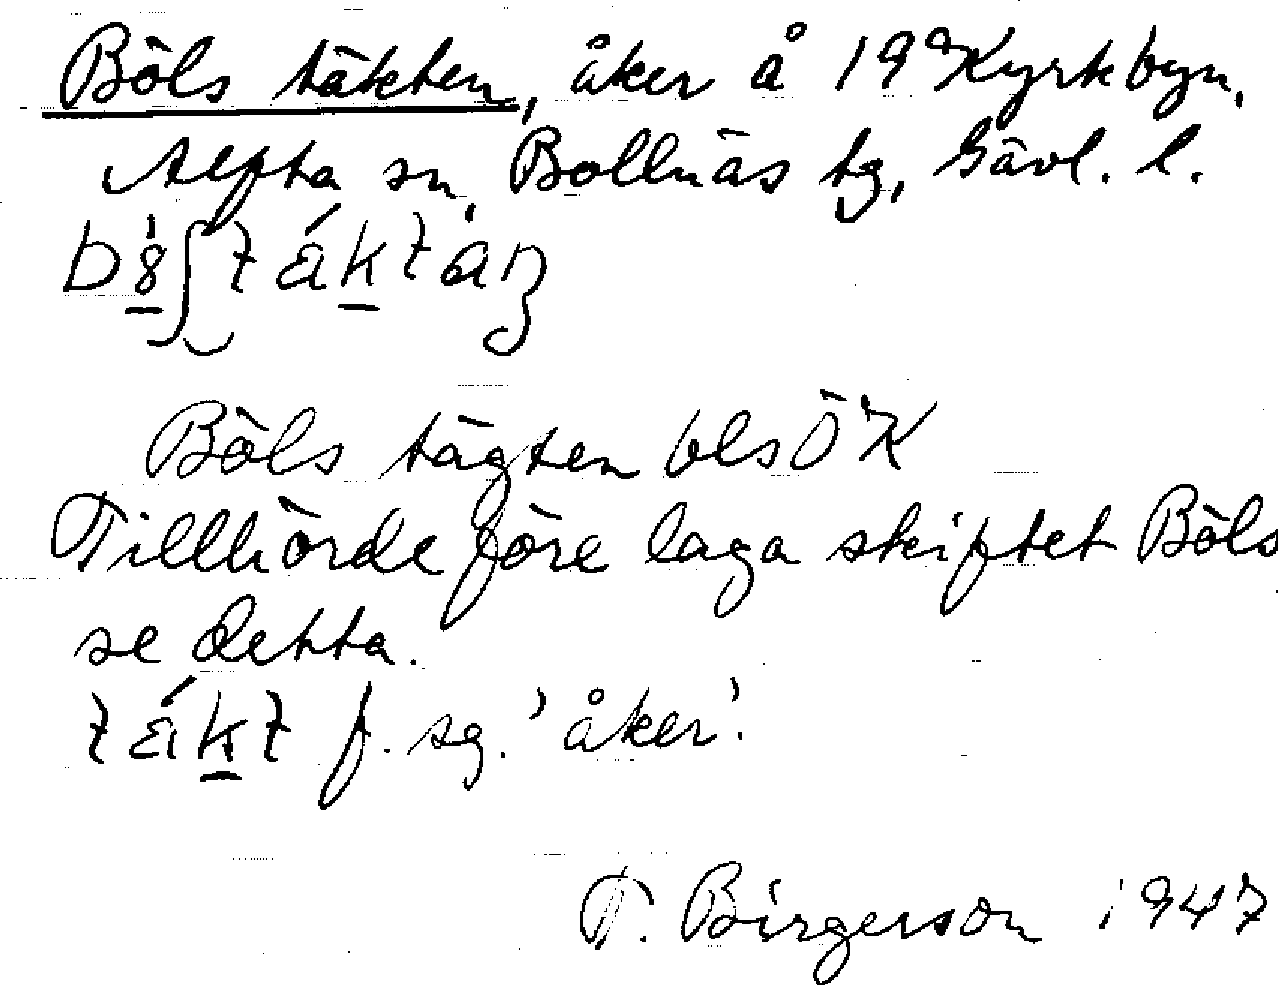 Böls täkten, åker å 19ᵃ Kyrkbyn,
Alfta sn, Bollnäs tg, Gävl. l.
Böls tägten bls ÖK
Tillhörde före laga skiftet Böls
se detta.
f. sg. 'åker'.
T. Birgerson 1947